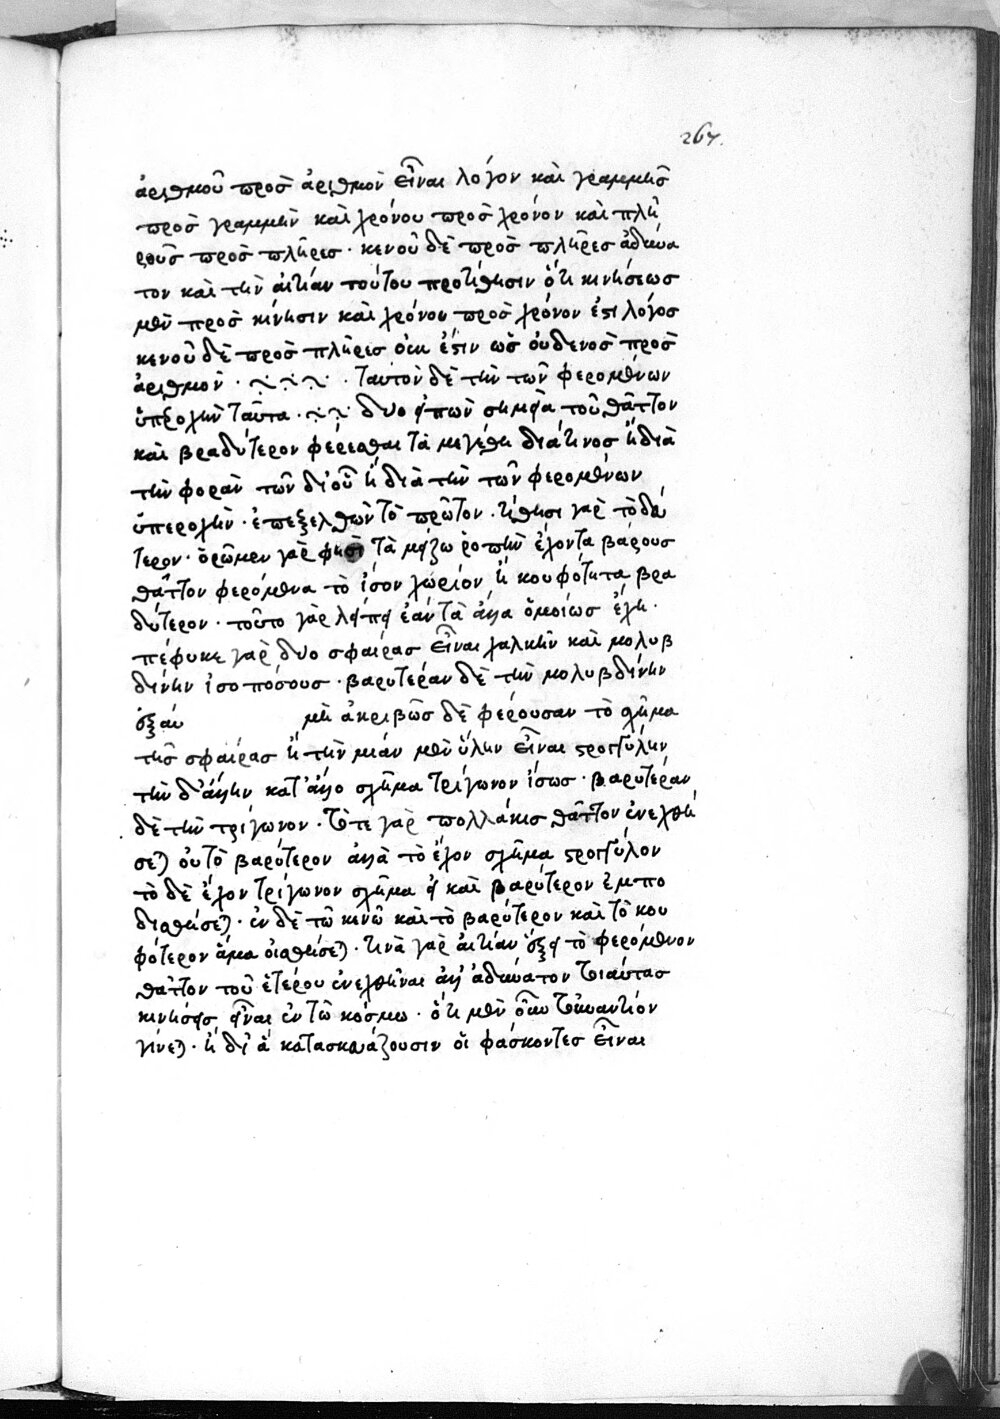 267.
ἀριθμοῦ πρὸς ἀριθμὸν εἶναι λόγον καὶ γραμμῆς
πρὸς γραμμὴν καὶ χρόνου πρὸς χρόνον καὶ πλή
ρους πρὸς πλῆρες · κενοῦ δὲ πρὸς πλῆρες ἀδύνα
τον καὶ τὴν αἰτίαν τούτου προτίθησιν ὅτι κινήσεως
μὲν πρὸς κίνησιν καὶ χρόνου πρὸς χρόνον ἐστι λόγος
κενοῦ δὲ πρὸς πλῆρες οὐκ ἔστιν ὡς οὐδενὸς πρὸς
ἀριθμὸν · ταυτὸν δὲ τὴν τῶν φερομένων
ὑπεροχὴν ταῦτα · δυο εἰπὼν σημεῖα τοῦ θᾶττον
καὶ βραδύτερον φέρεσθαι τὰ μεγέθη διάτινος ἢ διὰ
τὴν φορὰν τῶν δι' οὗ ἢ διὰ τὴν τῶν φερομένων
ὑπεροχὴν · ἐπεξελθὼν τὸ πρῶτον · τίθησι γὰρ τὸ δεύ
τερον · ὁρῶμεν γὰρ φησὶ τὰ μείζω ῥοπὴν ἔχοντα βάρους
θᾶττον φερόμενα τὸ ἴσον χωρίον ἢ κουφότητα βρα
δύτερον · τοῦτο γὰρ λείπει ἐάν τὰ ἄλλα ὁμοίως ἔχῃ ·
πέφυκε γὰρ δυο σφαίρας εἶναι χαλκῆν καὶ μολυβ
δίνην ἰσοπόσους · βαρυτέραν δὲ τὴν μολυβδίνην
ὀξεῖαν μὴ ἀκριβῶς δὲ φέρουσαν τὸ σχῆμα
τῆς σφαίρας ἢ τὴν μιάν μὲν ὕλην εἶναι στρογγύλην
τὴν δ' ἄλλην κατ' ἄλλο σχῆμα τρίγωνον ἴσως · βαρυτέραν
δὲ τὴν τρίγωνον · τότε γὰρ πολλάκις θᾶττον ἐνεχθή
σεται οὐ τὸ βαρύτερον ἀλλὰ τὸ ἔχον σχῆμα στρογγύλον
τὸ δὲ ἔχον τρίγωνον σχῆμα εἰ καὶ βαρύτερον ἐμπο
διαθήσεται · ἐν δὲ τῶ κενῶ καὶ τὸ βαρύτερον καὶ τὸ κου
φότερον ἅμα οἰσθήσεται · τινὰ γὰρ αἰτίαν ἕξει τὸ φερόμενον
θᾶττον τοῦ ἑτέρου ἐνεχθῆναι ἀλλ' ἀδύνατον τοιαύτας
κινήσεις εἶναι ἐν τῶ κόσμω · ὅτι μὲν οὖν τοὐναντίον
γίνεται · ἢ δι' ἃ κατασκευάζουσιν οἱ φάσκοντες εἶναι